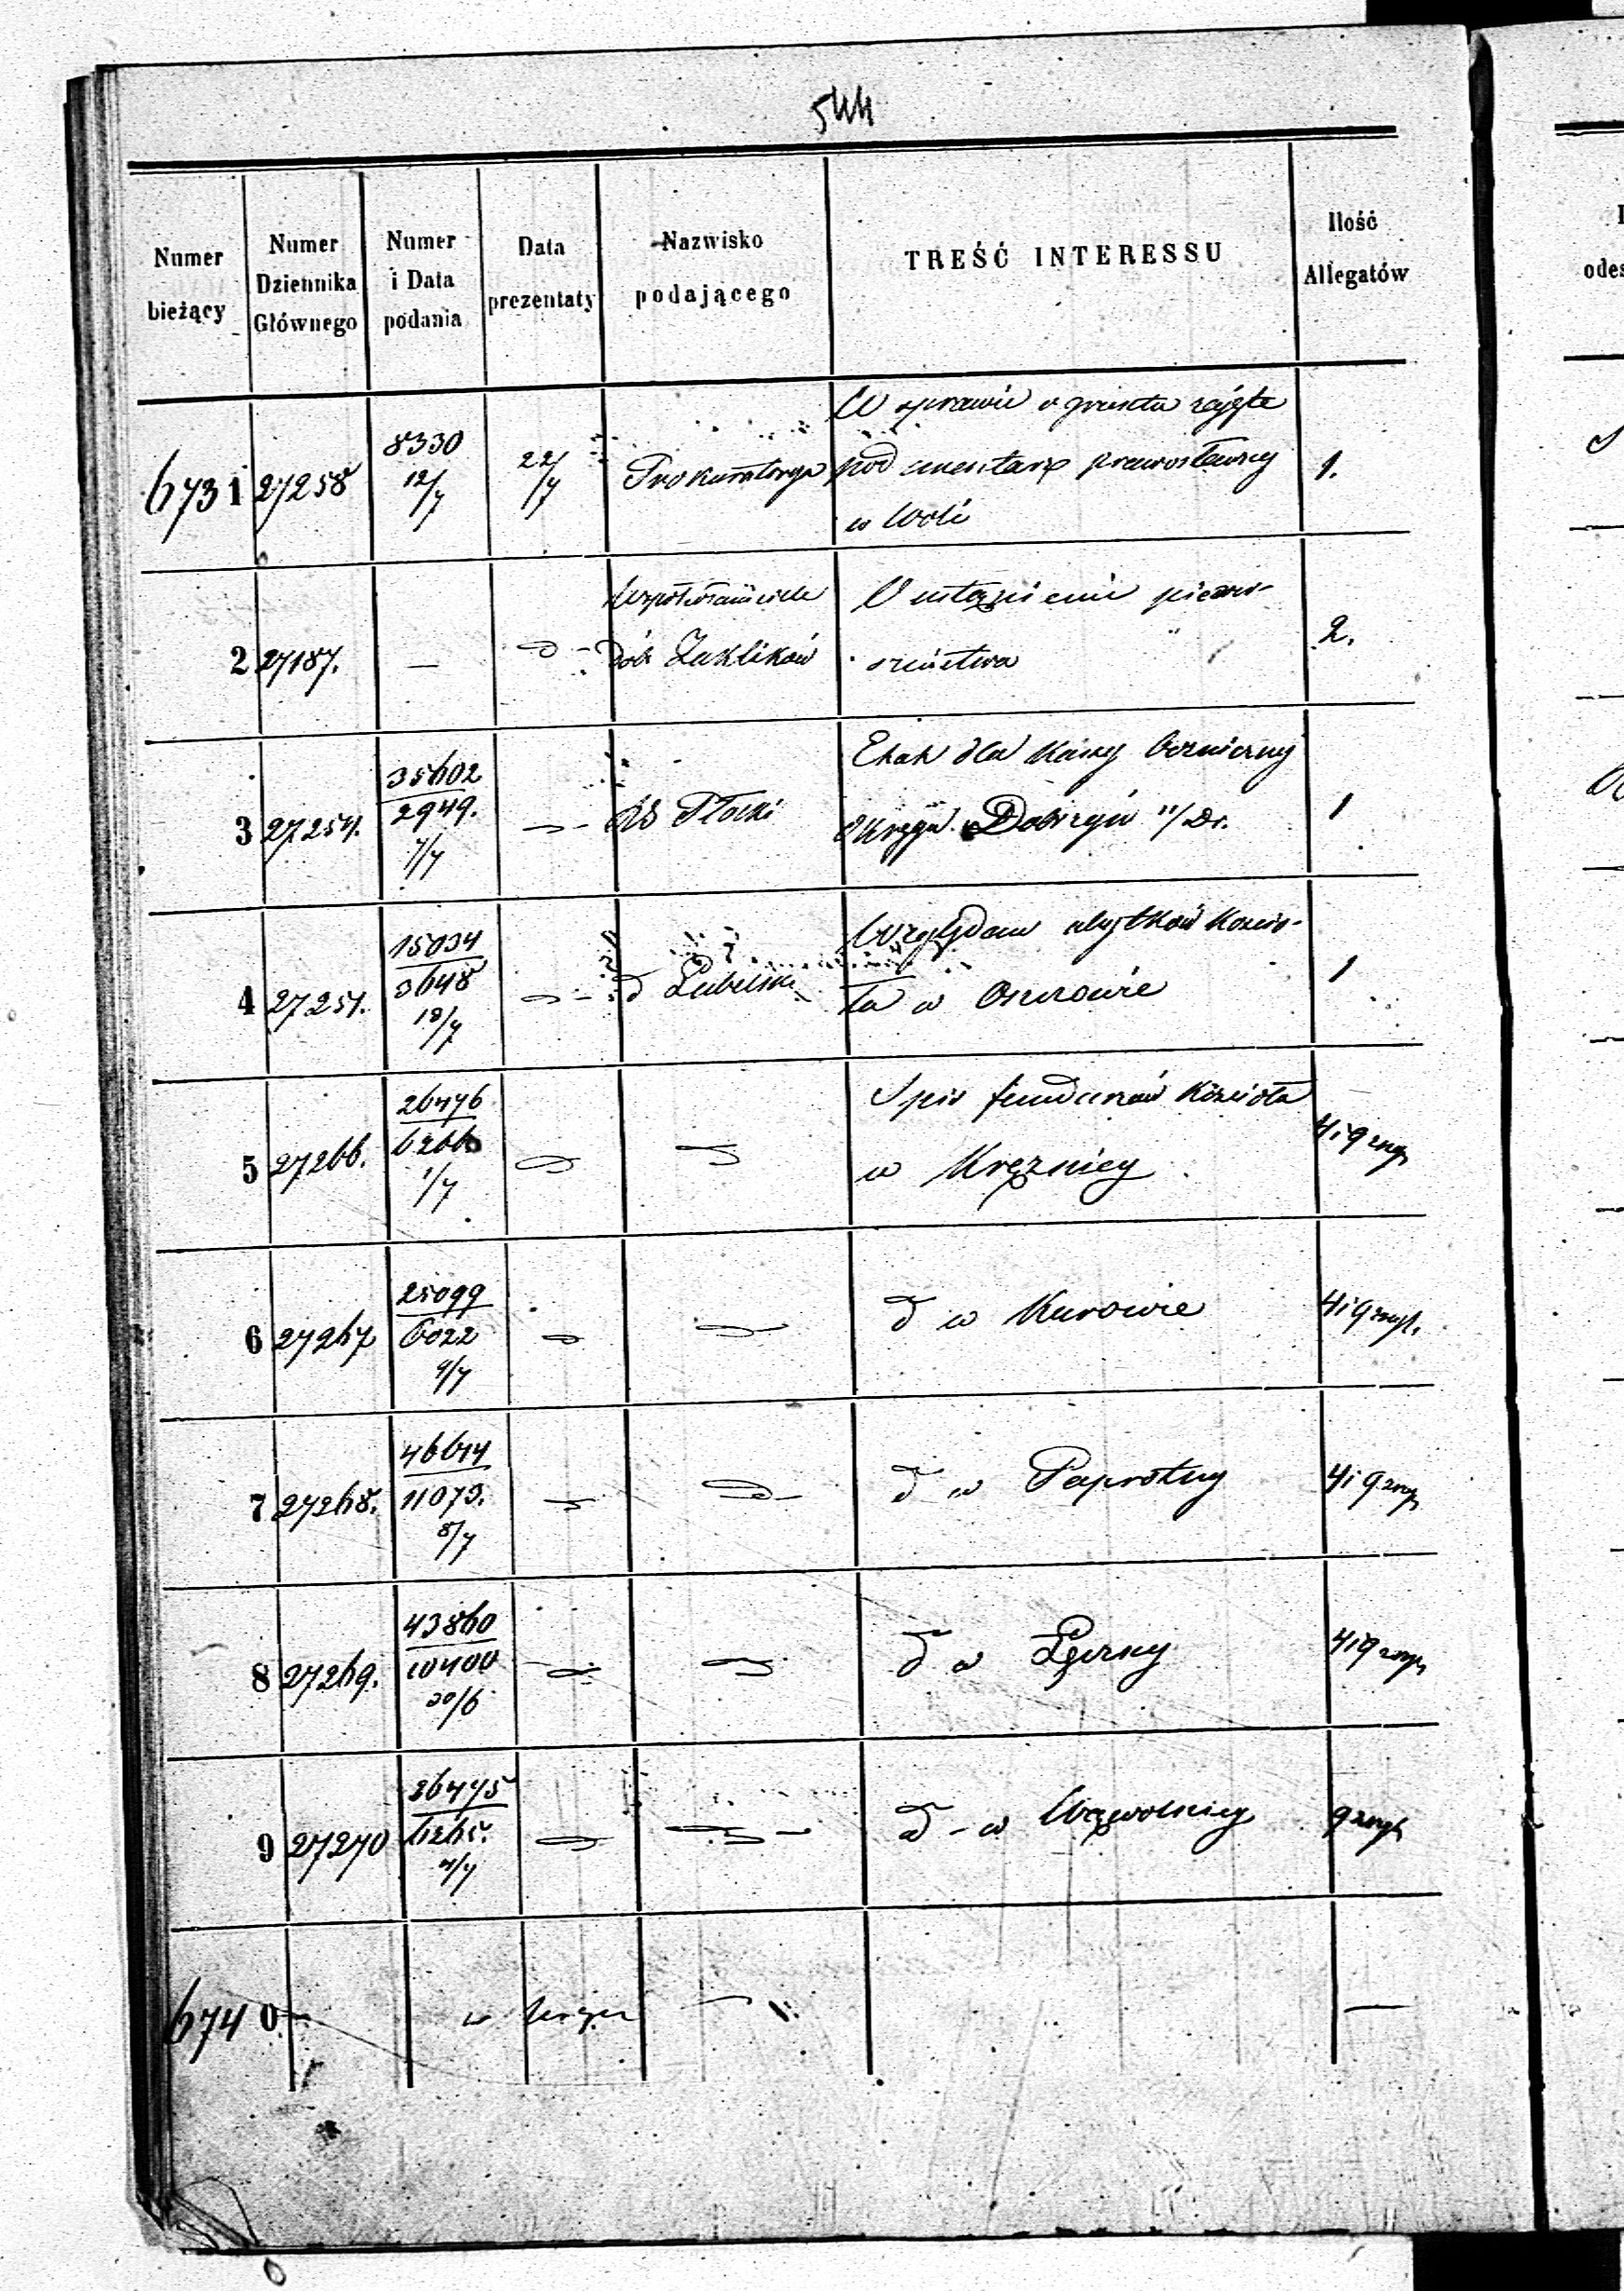 544
Numer bieżący
Numer Dziennika Głównego
Numer i Data podania
Data prezentaty
Nazwisko podającego
TREŚĆ INTERESSU
Ilość Allegatów
odes
6731 27258 8330 12/7 22/7 Prokuratorya W sprawie o grunta zajęte
pod cmentarz prawosławny 1.
w Woli
2 27187. — Współwłaściciele dób Zaklików O ustąpienie pierw-
szeństwa 2.
3 27254. 35602 2949. 7/7 Płocki Etat dla Kassy
Okręgu Dobrzyń n/Dr. 1
4 27251. 15034 3648 18/7 d Lubelski Względem użytków Kościo-
ła w 1
5 27266. 26476 6266 1/7 Spis funduszów Kościoła
w Krężnicy 4 i 9
6 27267 25099 6022 9/7 d w Kurowie 4 i 9
7 27268. 46614 11073. 8/7 d w Paprotny 4 i 9
8 27269. 43860 10400 30/6 d w Łęczny 4 i 9
9 27270 26475 6265. d - w Wąwolnicy 9
6740 — w —